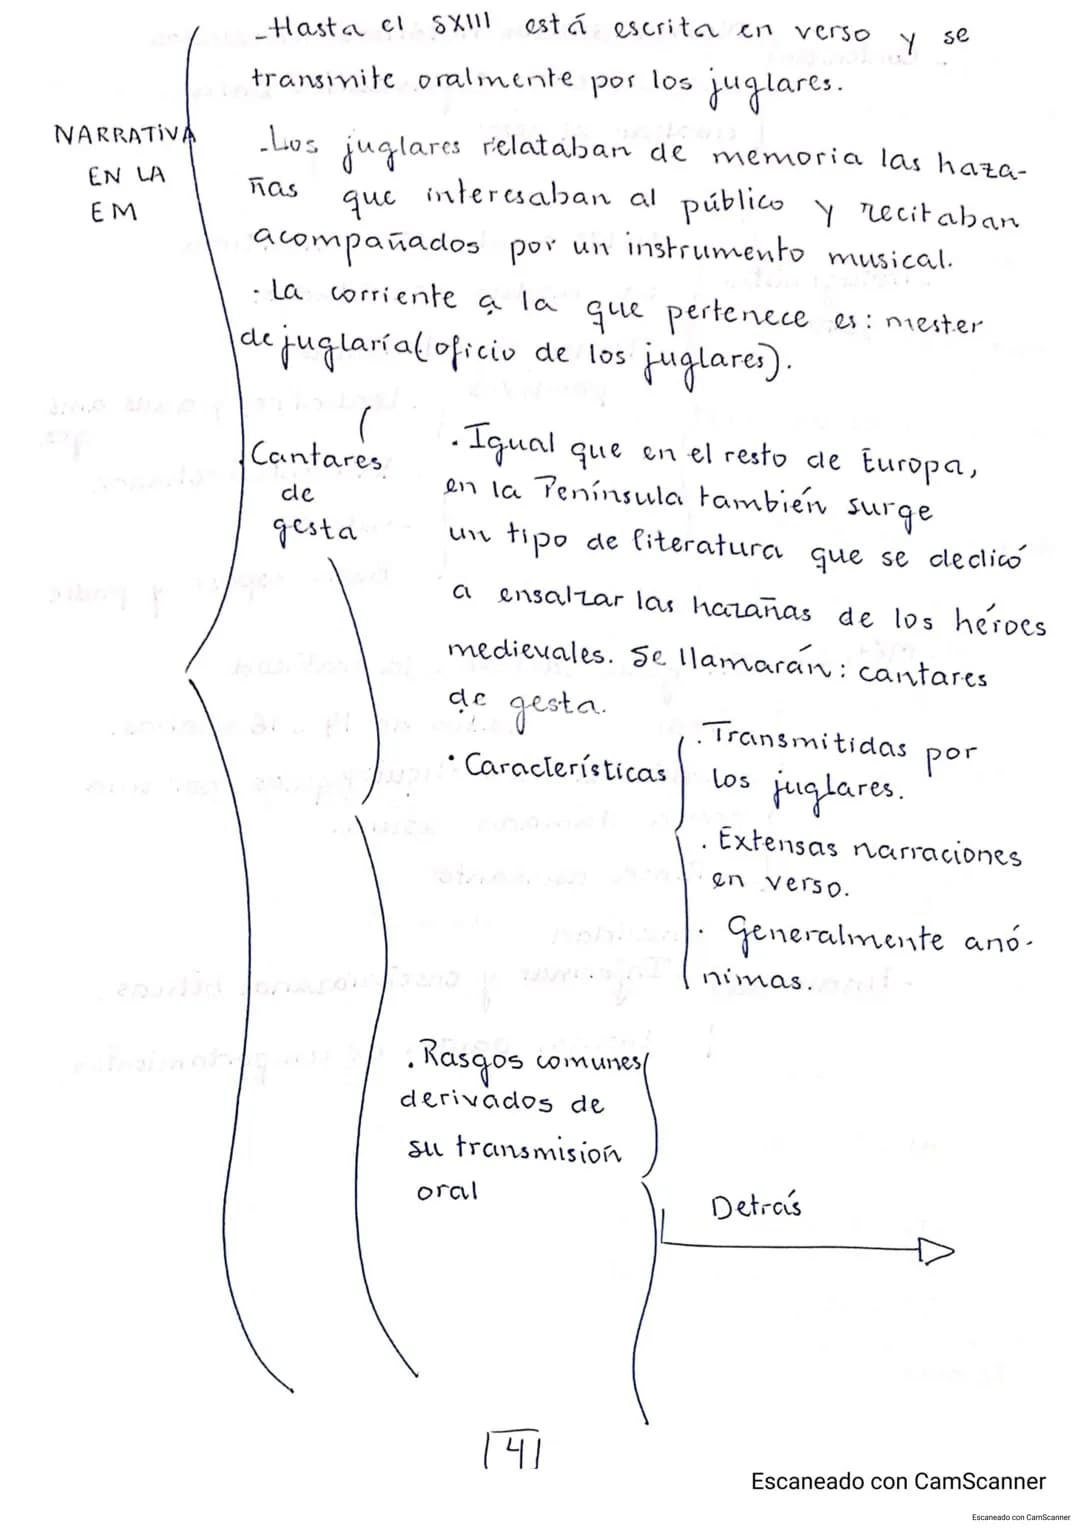 -Hasta el SXIII está escrita en verso y se
transmite oralmente por los juglares.
NARRATIVA
EN LA
EM
-Los juglares relataban de memoria las haza-
ñas que interesaban al público y recitaban
acompañados por un instrumento musical.
· La corriente a la que pertenece es: mester
de juglaría (oficio de los juglares).
Cantares
de
gesta
· Igual que en el resto de Europa,
en la Península también surge
un tipo de literatura que se dedicó
a ensalzar las hazañas de los héroes
medievales. Se llamarán: cantares
de gesta.
· Características
· Transmitidas por
los juglares.
· Extensas narraciones
en verso.
· Generalmente anó-
nimas.
· Rasgos comunes
derivados de
su transmisión
oral
Detrás
4
Escaneado con CamScanner
Escaneado con CamScanner